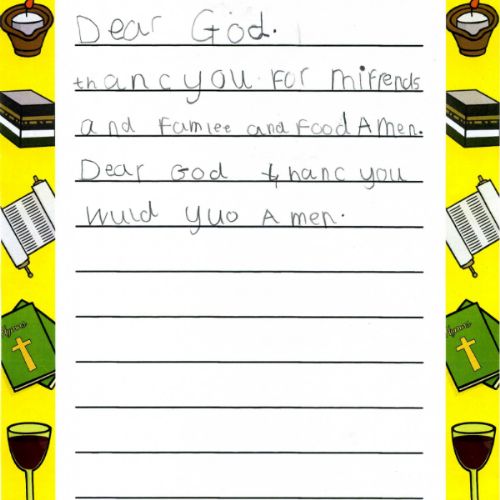 Dear God.
thanc you For mifrends
and Famlee and Food Amen.
Dear God thanc you
Wuld yuo Amen.
Hymns
Hymns